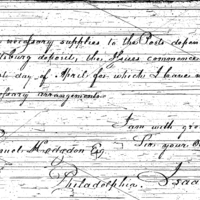 necessary supplies to the Posts depen
burg deposit, the Issues commence
day of April for which I have m
ssary arrangements
I am with gre
Sir your Ob
muel Hodgdon Esq
Philadelphia. Isaac